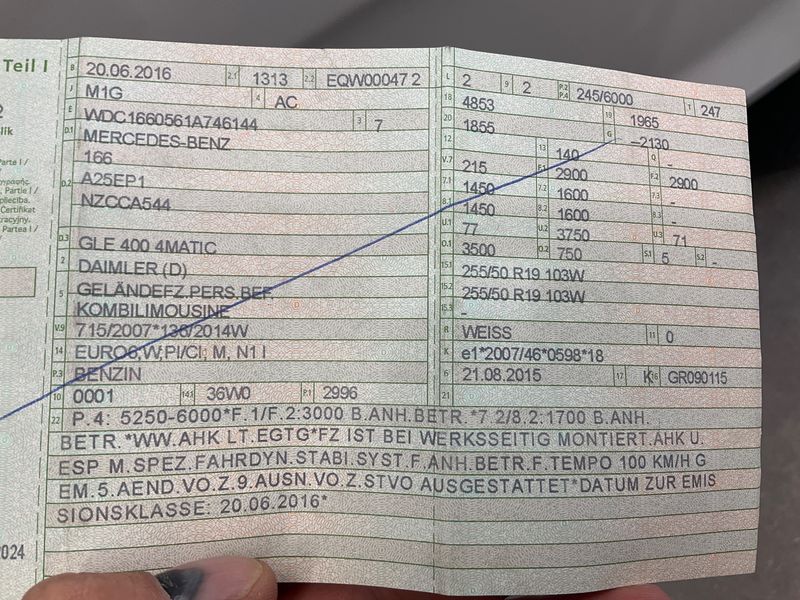 Teil I
B 20.06.2016 2.1 1313 2.2 EQW00047 2
J M1G 4 AC
E WDC1660561A746144 3 7
D.1 MERCEDES-BENZ
166
D.2 A25EP1
NZCCA544
D.3 GLE 400 4MATIC
2 DAIMLER (D)
5 GELÄNDEFZ.PERS.BEF.
KOMBILIMOUSINE
V.9 715/2007*136/2014W
14 EURO6;W;PI/CI; M, N1 I
P.3 BENZIN
10 0001 14.1 36W0 P.1 2996
L 2 9 2 P.2 P.4 245/6000 T 247
18 4853 19 1965
20 1855 G –2130
12 - 13 140 Q -
V.7 215 F.1 2900 F.2 2900
7.1 1450 7.2 1600 7.3 -
8.1 1450 8.2 1600 8.3 -
U.1 77 U.2 3750 U.3 71
O.1 3500 O.2 750 S.1 5 S.2 -
15.1 255/50 R19 103W
15.2 255/50 R19 103W
15.3 -
R WEISS 11 0
K e1*2007/46*0598*18
6 21.08.2015 17 K 16 GR090115
21
22 P.4: 5250-6000*F.1/F.2:3000 B.ANH.BETR.*7.2/8.2:1700 B.ANH.
BETR.*WW.AHK LT.EGTG*FZ IST BEI WERKSSEITIG MONTIERT.AHK U.
ESP M.SPEZ.FAHRDYN.STABI.SYST.F.ANH.BETR.F.TEMPO 100 KM/H G
EM.5.AEND.VO.Z.9.AUSN.VO.Z.STVO AUSGESTATTET*DATUM ZUR EMIS
SIONSKLASSE: 20.06.2016*
2024